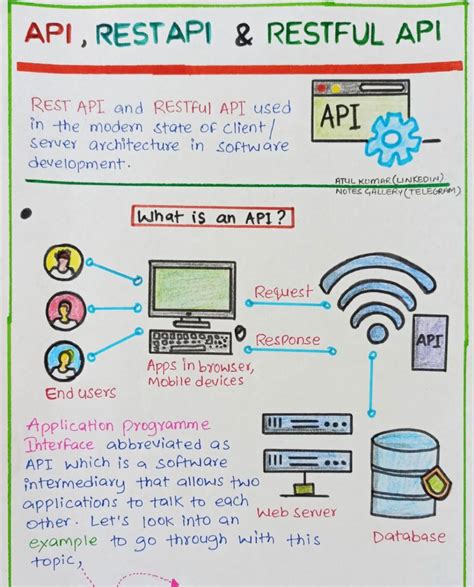 API, REST API & RESTFUL API
REST API and RESTful API used
in the modern state of client/
server architecture in software
development.
API
ATUL KUMAR (LINKEDIN)
NOTES GALLERY (TELEGRAM)
What is an API?
Request
Response
API
End users
Apps in browser,
Mobile devices
Application programme
Interface abbreviated as
API which is a software
intermediary that allows two
applications to talk to each
other. Let's look into an
example to go through with this
topic,
Web Server
Database